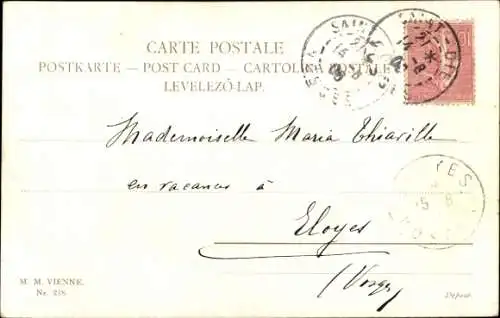 CARTE POSTALE
POSTKARTE — POST CARD — CARTOLINA POSTALE
LEVELEZŐ-LAP.
Mademoiselle Maria Thiaville
en vacances à
Eloyes
(Vosges)
M. M. VIENNE.
Nr. 218.
Déposé.